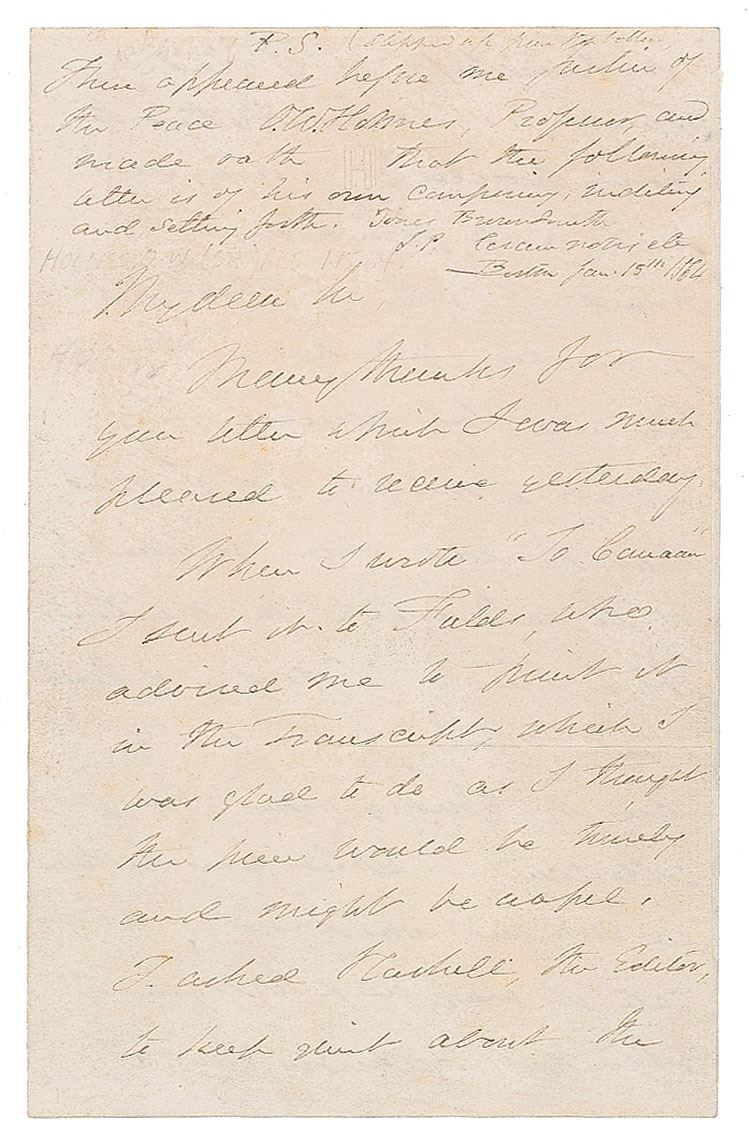 P.S. (slipped up from the bottom)
Then appeared before me Justice of
the Peace O.W. Holmes, Professor, and
made oath that the following
letter is of his own composing, inditing
and setting forth. Jones Brownsmith
J.P.
Boston Jan. 15th 1864
My dear Sir,
Many thanks for
your letter which I was much
pleased to receive yesterday.
When I wrote "To Canaan"
I sent it to Fields, who
advised me to print it
in the Transcript, which I
was glad to do as I thought
the piece would be timely
and might be useful.
I asked Haskell, the Editor,
to keep quiet about the